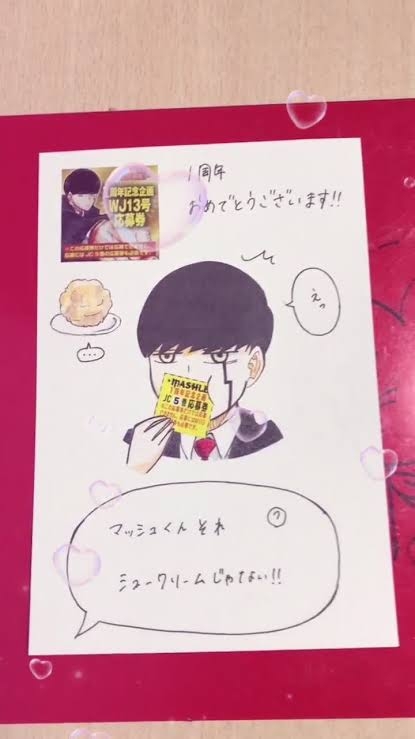 1周年記念企画
WJ13号
応募券
1周年
おめでとうございます!!
えっ
...
MASHLE
1周年記念企画
JC5巻応募券
マッシュくん それ
シュークリームじゃない!!